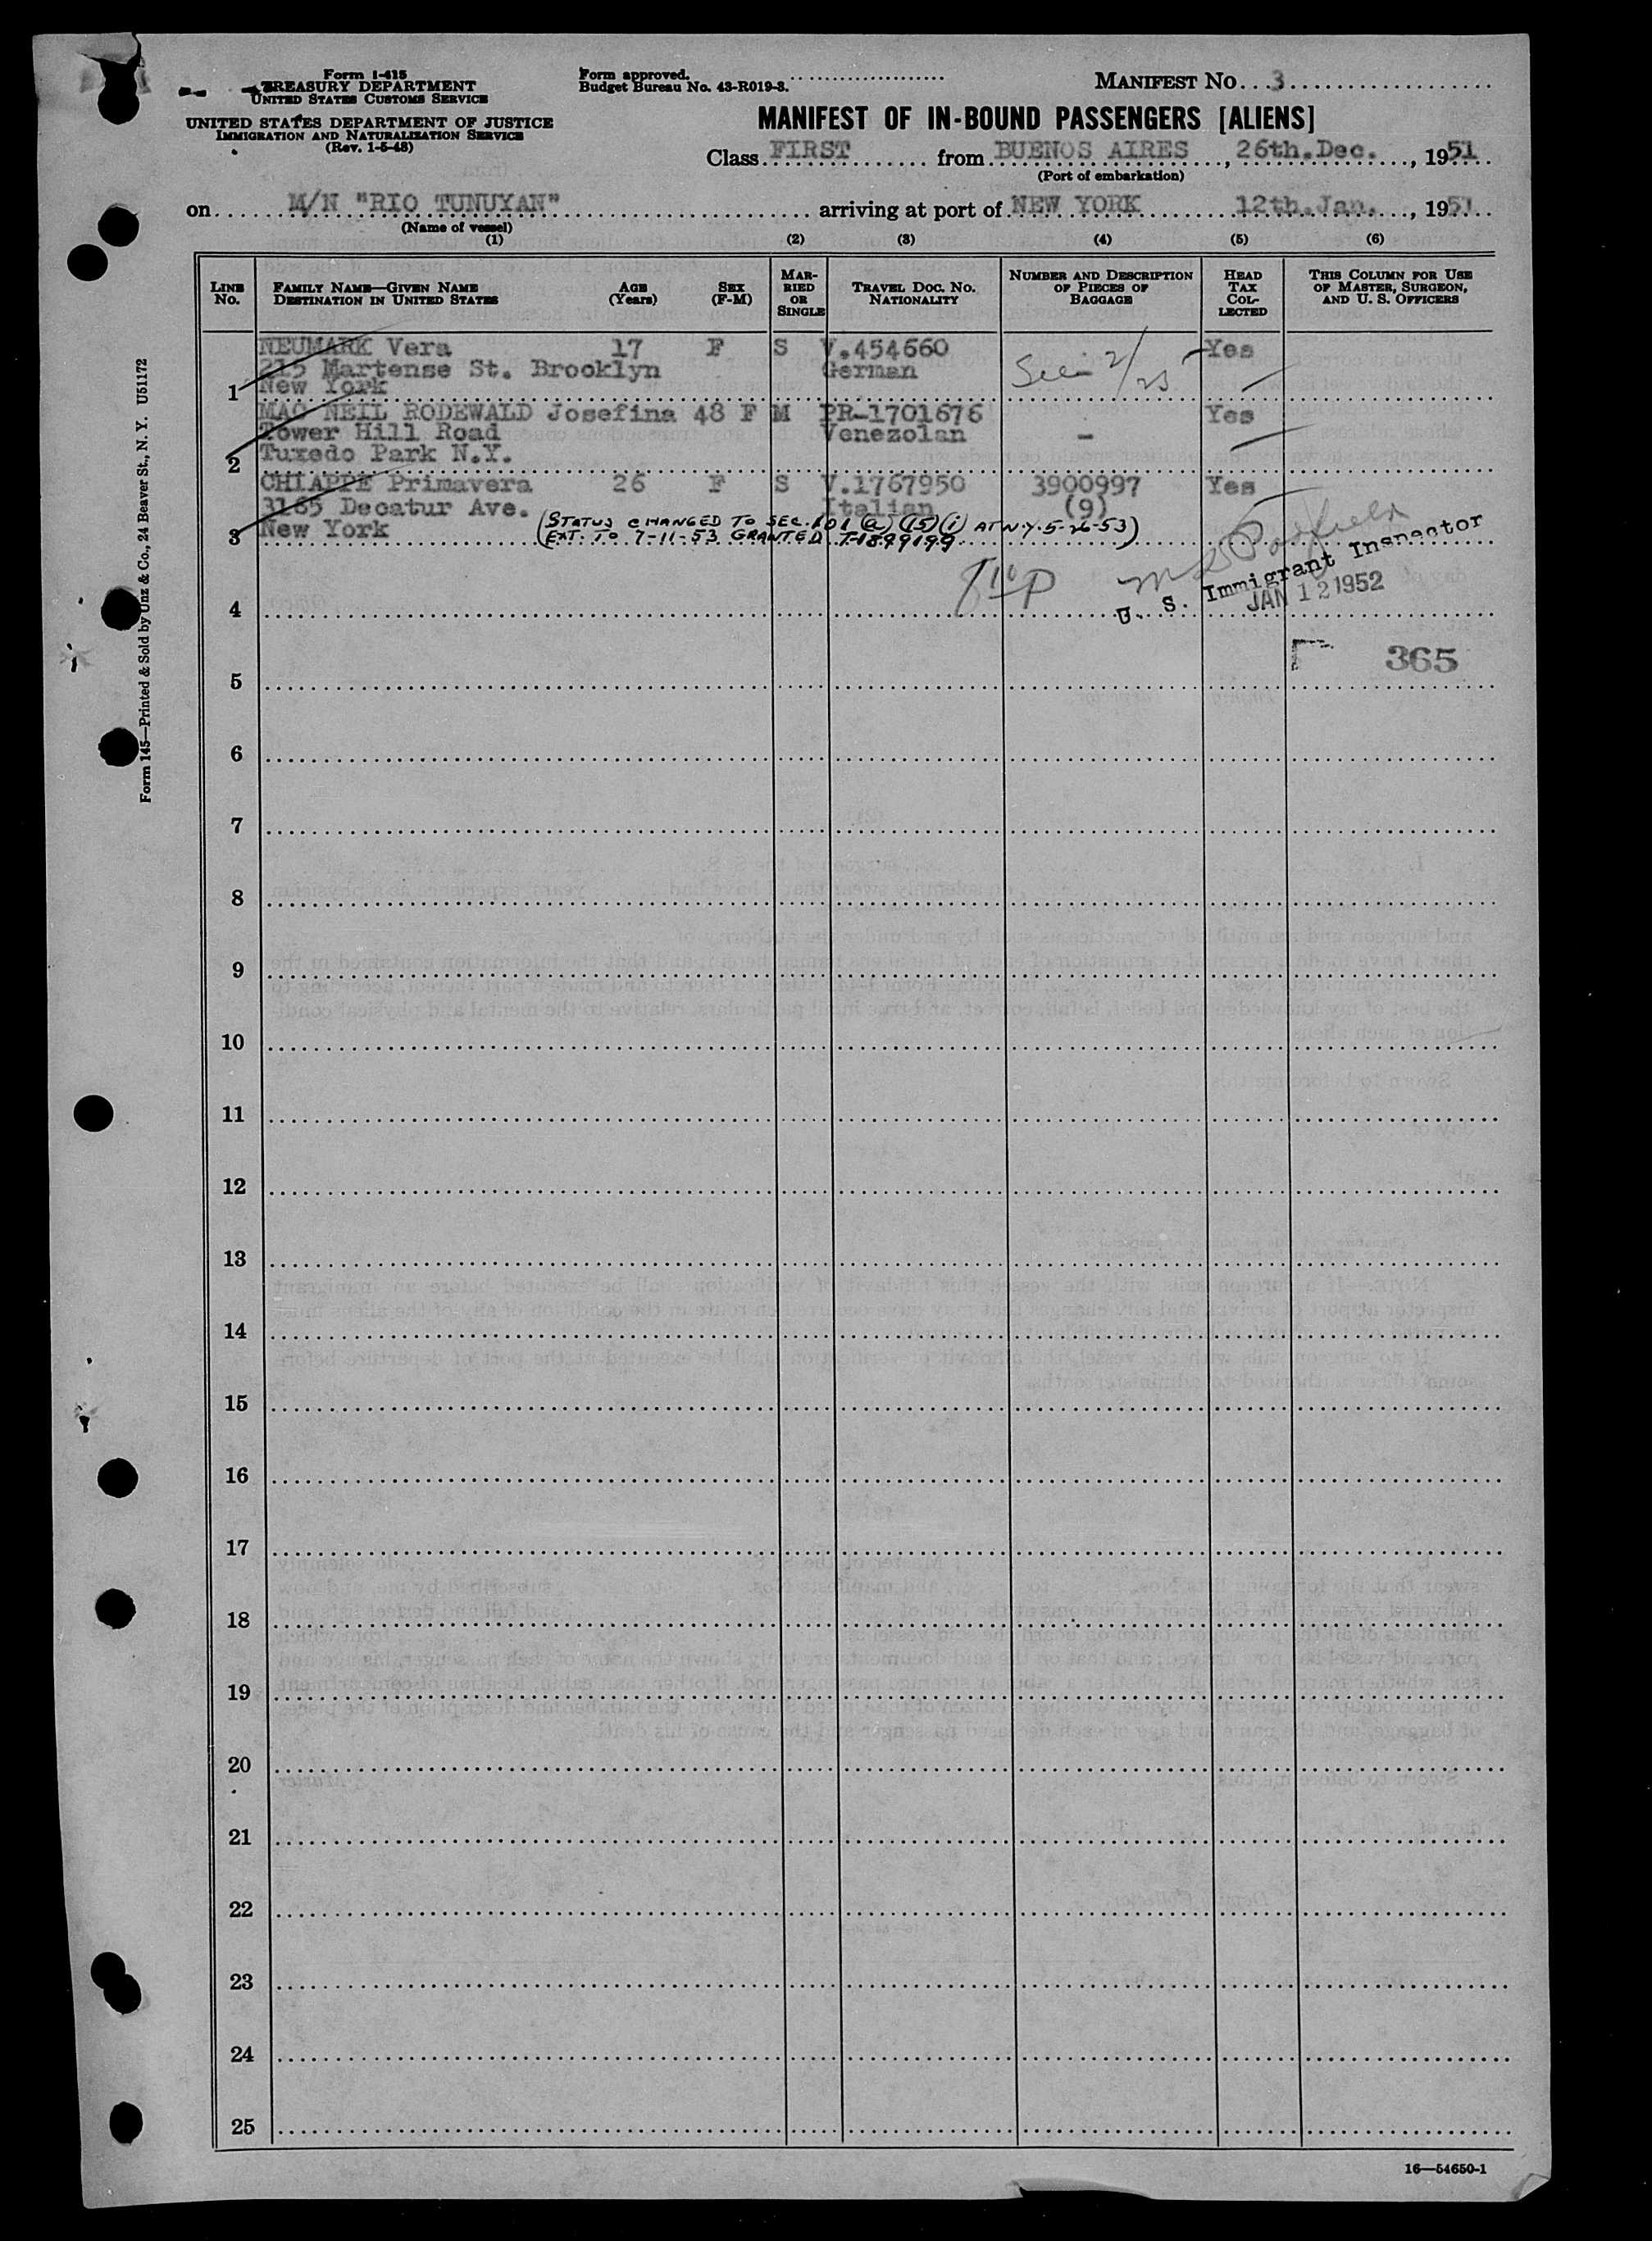 Form I-415
TREASURY DEPARTMENT
UNITED STATES CUSTOMS SERVICE
UNITED STATES DEPARTMENT OF JUSTICE
IMMIGRATION AND NATURALIZATION SERVICE
(Rev. 1-5-48)
Form approved.
Budget Bureau No. 43-R019-3.
MANIFEST NO. 3
MANIFEST OF IN-BOUND PASSENGERS [ALIENS]
Class FIRST from BUENOS AIRES, 26th.Dec., 1951
(Port of embarkation)
on M/N "RIO TUNUYAN" arriving at port of NEW YORK 12th.Jan., 1951
(Name of vessel)
(1) (2) (3) (4) (5) (6)
LINE NO.
FAMILY NAME—GIVEN NAME
DESTINATION IN UNITED STATES
AGE (Years)
SEX (F-M)
MARRIED OR SINGLE
TRAVEL DOC. NO.
NATIONALITY
NUMBER AND DESCRIPTION OF PIECES OF BAGGAGE
HEAD TAX COLLECTED
THIS COLUMN FOR USE OF MASTER, SURGEON, AND U. S. OFFICERS
NEUMARK Vera 17 F S V.454660 Yes
215 Martense St. Brooklyn German
1 New York
2/25
MAC NEIL RODEWALD Josefina 48 F M PR-1701676 Yes
Tower Hill Road Venezolan -
2 Tuxedo Park N.Y.
CHIAPPE Primavera 26 F S V.1767950 3900997 Yes
3165 Decatur Ave. Italian (9)
3 New York
(STATUS CHANGED TO SEC. 101 (a) (15) (i) AT N.Y. 5-26-53)
EXT. TO 7-11-53 GRANTED T-1899199
U. S. Immigrant Inspector
JAN 12 1952
4
365
5
6
7
8
9
10
11
12
13
14
15
16
17
18
19
20
21
22
23
24
25
16—54650-1
Form 145—Printed & Sold by Unz & Co., 24 Beaver St., N. Y. U51172